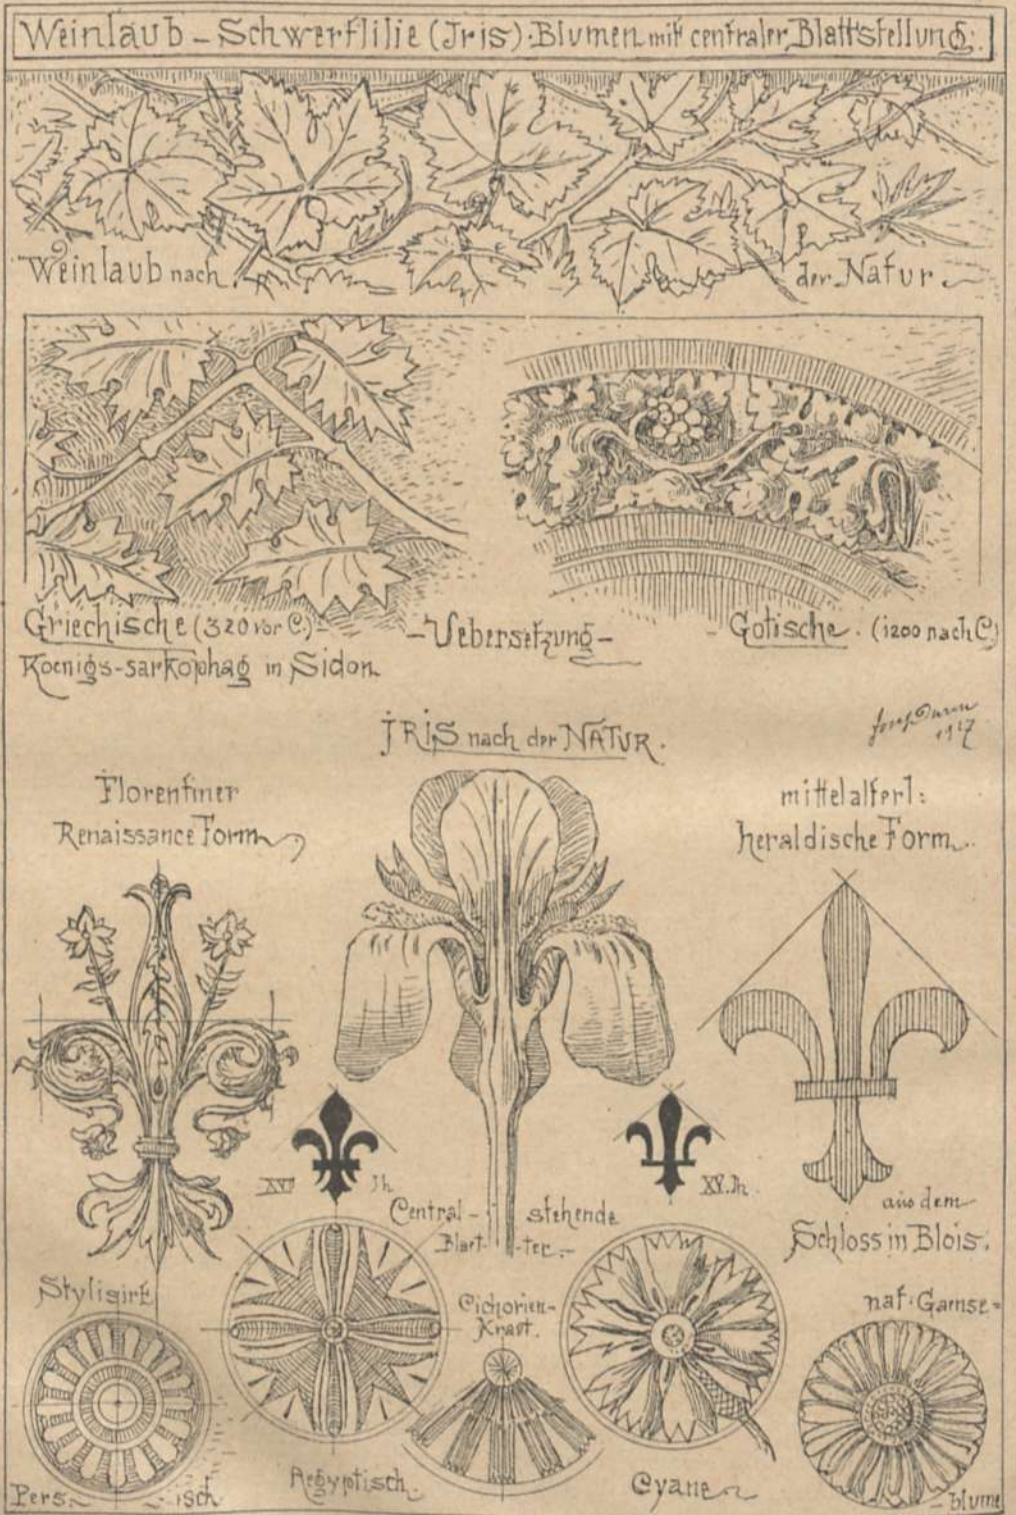 Weinlaub – Schwerflilie (Iris). Blumen mit centraler Blattstellung.
Weinlaub nach der Natur.
Griechische (320 vor C.)
– Uebersetzung –
Gotische. (1200 nach C)
Koenigs-sarkophag in Sidon
IRIS nach der NATUR.
Florentiner
Renaissance Form
mittelalterl:
heraldische Form.
XVI Jh.
XV. Jh.
Central – stehende
Blaet- -ter.
aus dem
Schloss in Blois.
Stylisirt
Cichorien-
Kraut.
nat. Gamse=
Pers. isch
Aegyptisch.
Cyane
– blume